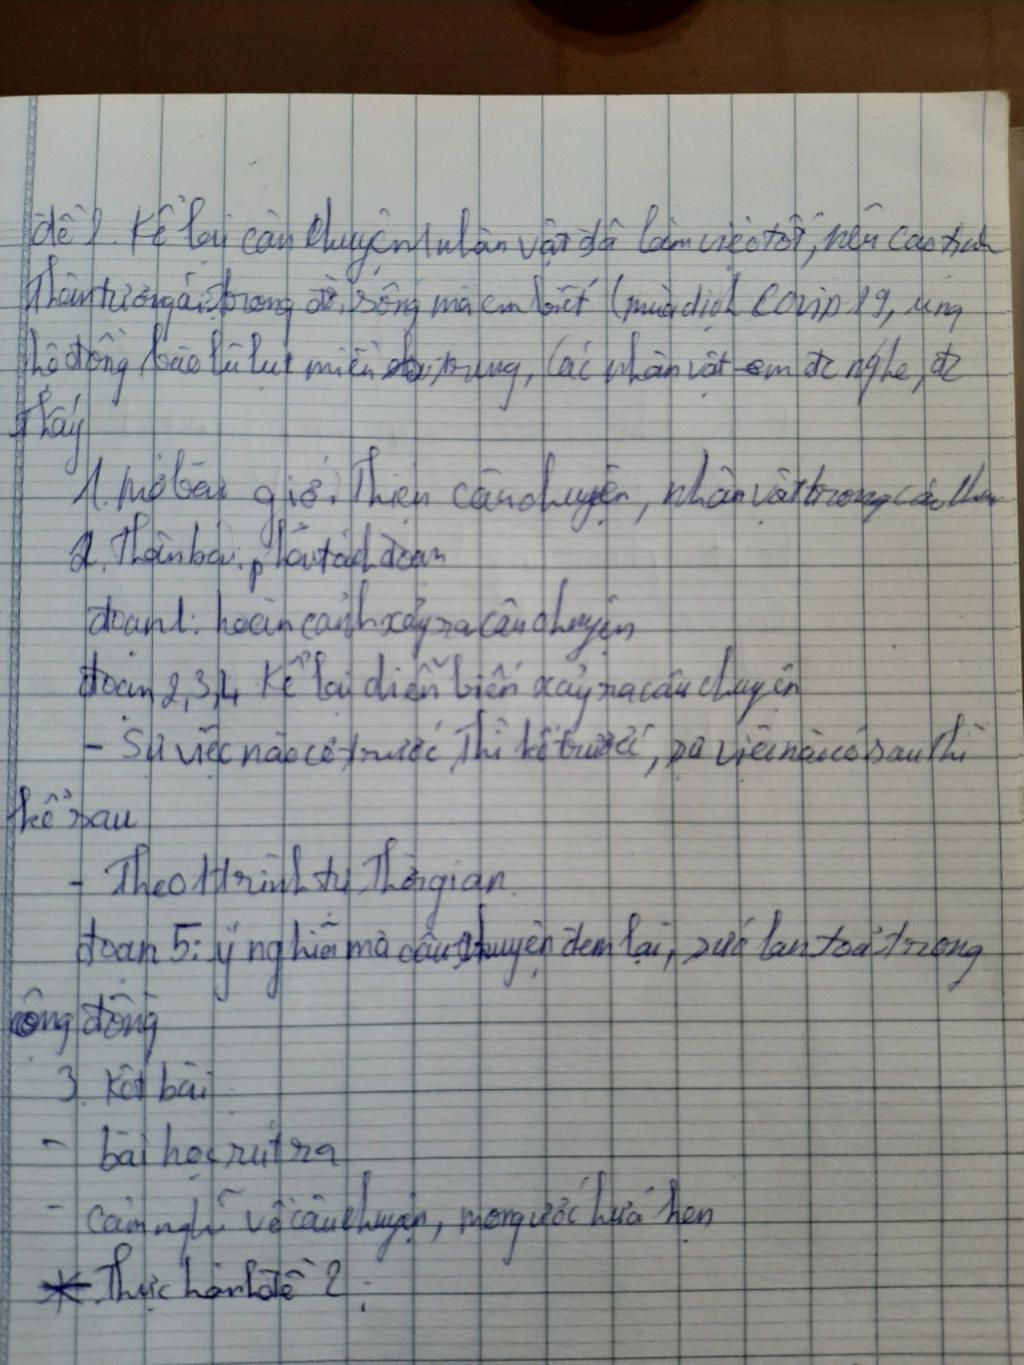 đề 2. Kể lại câu chuyện nhân vật đã làm việc tốt, nêu cao tinh
thần tương ái trong đời sống mà em biết (mùa dịch Covip-19, ủng
hộ đồng bào lũ lụt miền trung, các nhân vật em đc nghe, đc
thấy
1. mở bài giới thiệu câu chuyện, nhân vật trong câu
2. Thân bài. tách đoạn
đoạn 1: hoàn cảnh xảy ra câu chuyện
đoạn 2,3,4 kể lại diễn biến xảy ra câu chuyện
- Sự việc nào có trước thì kể trước, sự việc nào có sau thì
kể sau
- Theo trình tự thời gian.
đoạn 5: ý nghĩa mà câu chuyện đem lại, sức lan toả trong
cộng đồng
3. Kết bài
- bài học rút ra
- cảm nghĩ về câu chuyện, mong ước hứa hẹn
* Thực hành đề 2: